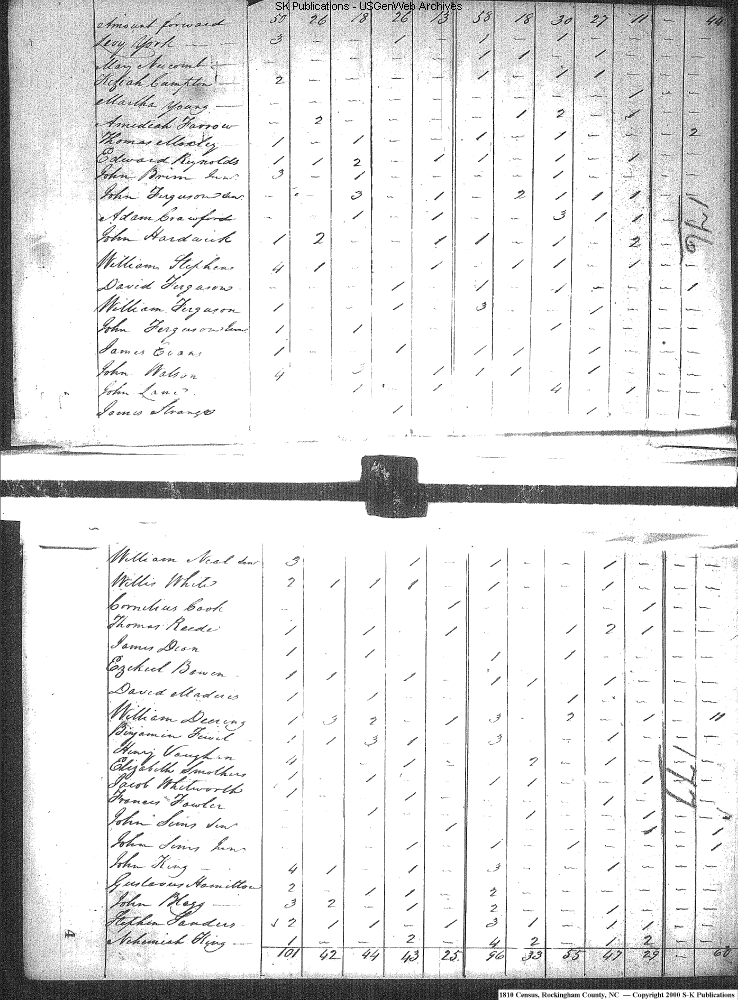 SK Publications - USGenWeb Archives
Amount forward 57 26 18 26 13 58 18 30 27 11 — 44
Levy York 3 — — 1 — 1 — 1 — — — —
Mary Newcomb — — — — — 1 1 — 1 — — —
Keziah Campton 2 — — — — 1 — 1 1 — — —
Martha Young — — — — — — — — — 1 — —
Amediah Farrow — 2 — — — — 1 2 — 1 — —
Thomas Moxley 1 — 1 — — 1 — 1 — — — 2
Edward Reynolds 1 1 2 — 1 1 — 1 — — — —
John Brim Junr 3 — 1 — — — — 1 — — — —
John Ferguson Senr — — 3 — 1 — 2 1 1 1 — —
Adam Crawford — — 1 — 1 — — 3 1 1 — —
176
John Hardwick 1 2 — — 1 1 — 1 — 2 — —
William Stephens 4 1 — — 1 — 1 1 — 1 — —
David Ferguson — — — 1 — 1 — 1 — — — 1
William Ferguson 1 — — 1 — 3 — — 1 — — —
John Ferguson Junr 1 — 1 — — — — 1 — — — —
James Evans 1 — — 1 — 1 1 — 1 — — —
John Watson 4 — — — 1 1 1 — 1 — — —
John Lane — — 1 — 1 — — 4 — 1 — —
James Strange — — — 1 — — — — 1 — — —
William Neal Senr 3 — — 1 — 1 — — 1 — — —
Willis White 2 1 1 1 — 1 — — 1 — — —
Cornelius Cook — — — — 1 — — — — 1 — —
Thomas Reede 1 — 1 — 1 — — 1 2 1 — —
James Dean 1 — 1 — — 1 — 1 — — — —
Ezekiel Bowen 1 1 — 1 — 1 1 — 1 — — —
David Maderies 1 — 1 — — — — 1 — — — —
William Deering 1 3 2 — 1 3 — 2 — 1 — 11
Binjamin 1 1 3 1 — 3 — — 1 — — —
Henry Vaughn 4 — — 1 — — 2 — 1 — — —
Elizabeth Smothers
Jacob Whitworth
177
Francis Fowler
John Sims Senr
John Sims Junr
John King 4 1 — 1 — 3 — — 1 — — —
Gustavus Hamilton 2 — 1 1 — 2 — — — — — —
John Blagg 3 2 — 1 — 2 — — 1 — — —
Stephen Sanders 2 1 1 — 1 3 1 — 1 1 — —
Nehemiah King 1 — — 2 — 4 2 — 1 2 — —
101 42 44 43 25 96 33 55 47 29 — 60
4
1810 Census, Rockingham County, NC — Copyright 2000 S-K Publications